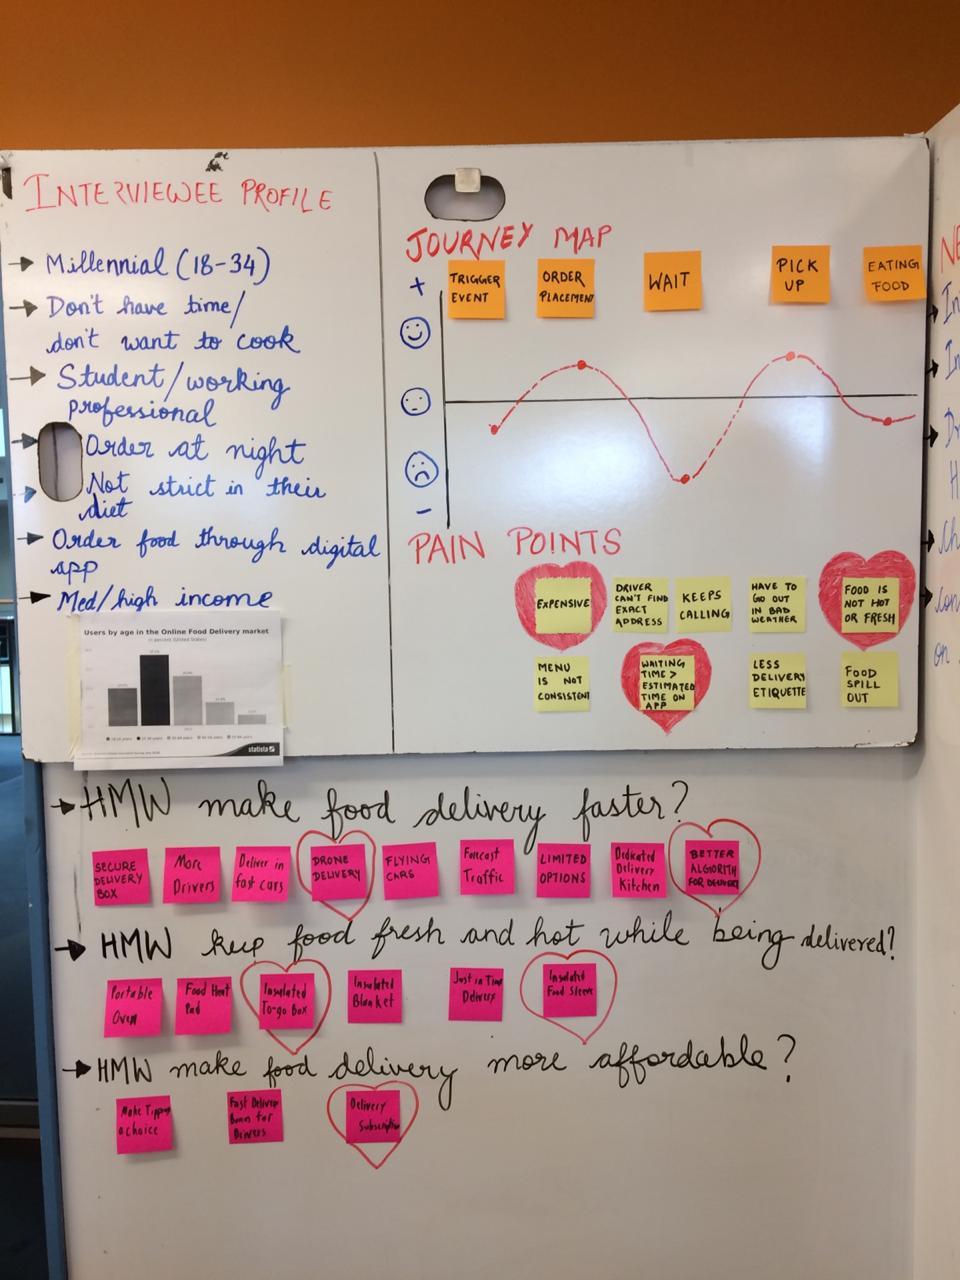 INTERVIEWEE PROFILE
Millennial (18-34)
Don't have time/
don't want to cook
Student/working
professional
Order at night
Not strict in their
diet
Order food through digital
app
Med/high income
Users by age in the Online Food Delivery market
in percent (United States)
statista
JOURNEY MAP
+
TRIGGER
EVENT
ORDER
PLACEMENT
WAIT
PICK
UP
EATING
FOOD
-
PAIN POINTS
EXPENSIVE
DRIVER
CAN'T FIND
EXACT
ADDRESS
KEEPS
CALLING
HAVE TO
GO OUT
IN BAD
WEATHER
FOOD IS
NOT HOT
OR FRESH
MENU
IS NOT
CONSISTENT
WAITING
TIME >
ESTIMATED
TIME ON
APP
LESS
DELIVERY
ETIQUETTE
FOOD
SPILL
OUT
NE
In
In
Dr
H
Ch
con
on
HMW make food delivery faster?
SECURE
DELIVERY
BOX
More
Drivers
Deliver in
fast cars
DRONE
DELIVERY
FLYING
CARS
Forecast
Traffic
LIMITED
OPTIONS
Dedicated
Delivery
Kitchen
BETTER
ALGIORITH
FOR DELIVERY
HMW keep food fresh and hot while being delivered?
Portable
Oven
Food Heat
Pad
Insulated
To-go Box
Insulated
Blanket
Just in Time
Delivery
Insulated
Food Sleeve
HMW make food delivery more affordable?
Make Tipping
a choice
Fast Delivery
Bonus for
Drivers
Delivery
Subscription